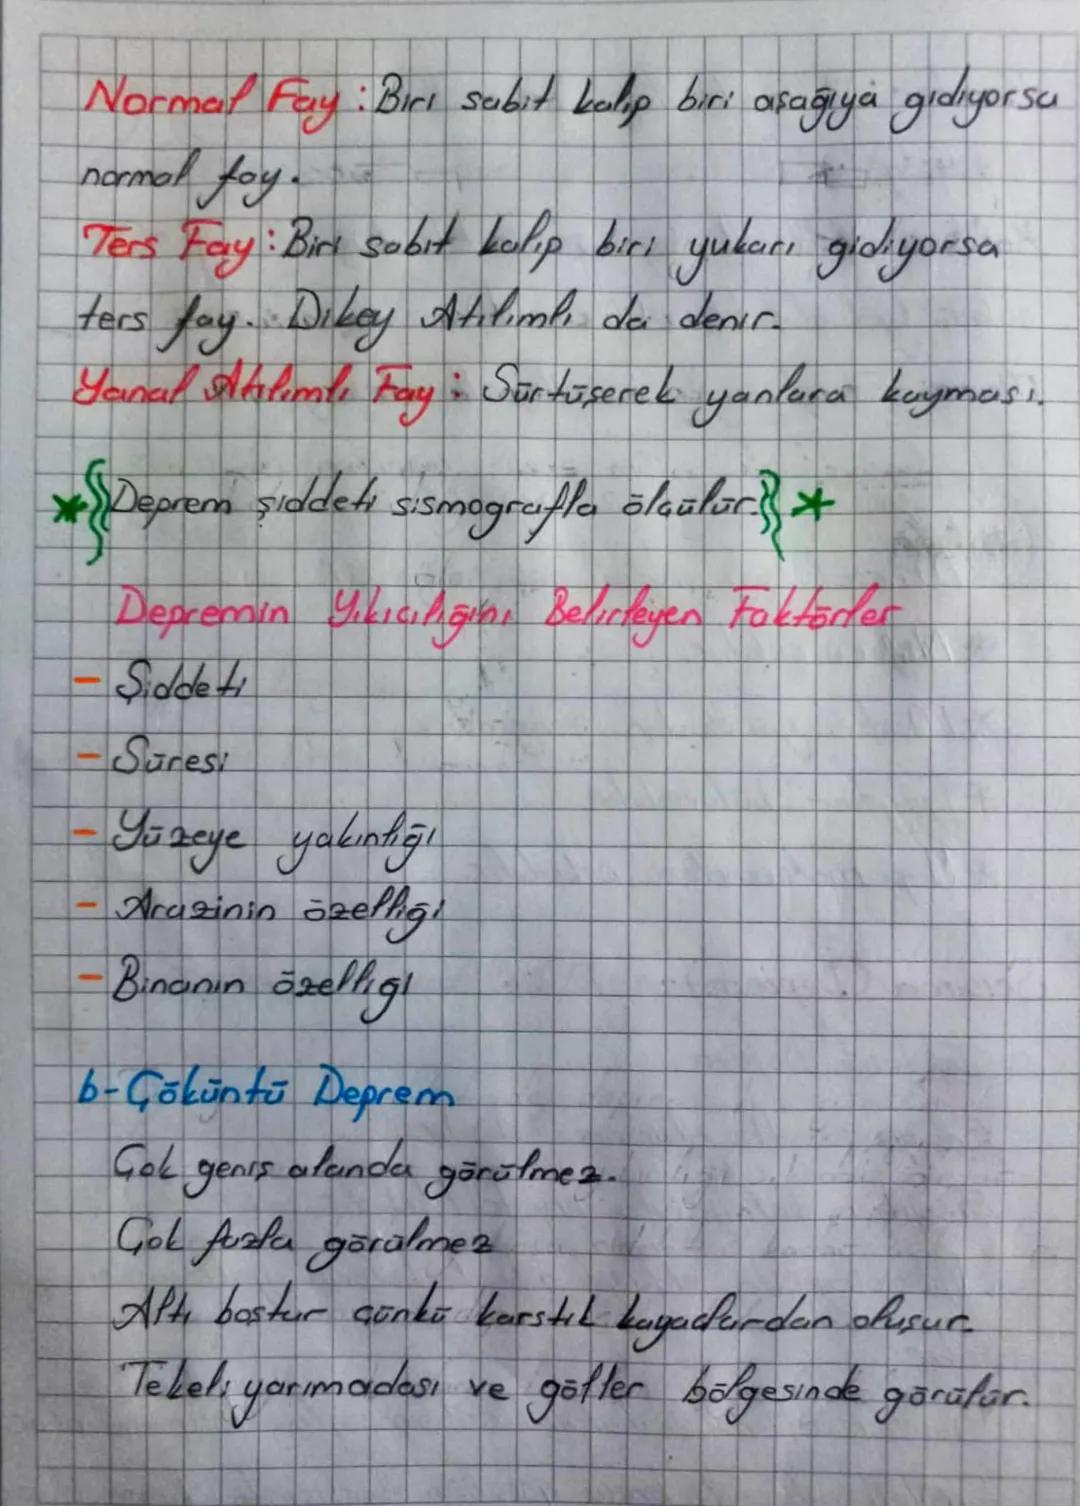 Normal Fay : Biri sabit kalıp biri aşağıya gidiyorsa
normal fay.
Ters Fay : Biri sabit kalıp biri yukarı gidiyorsa
ters fay. Dikey Atılımlı da denir.
Yanal Atılımlı Fay : Sürtüşerek yanlara kayması.
* Deprem şiddeti sismografla ölçülür. *
Depremin Yıkıcılığını Belirleyen Faktörler
- Şiddeti
- Süresi
- Yüzeye yakınlığı
- Arazinin özelliği
- Binanın özelliği
b- Çöküntü Deprem
Çok geniş alanda görülmez.
Çok fazla görülmez
Altı boştur çünkü karstik kayaçlardan oluşur.
Tekeli yarımadası ve göller bölgesinde görülür.